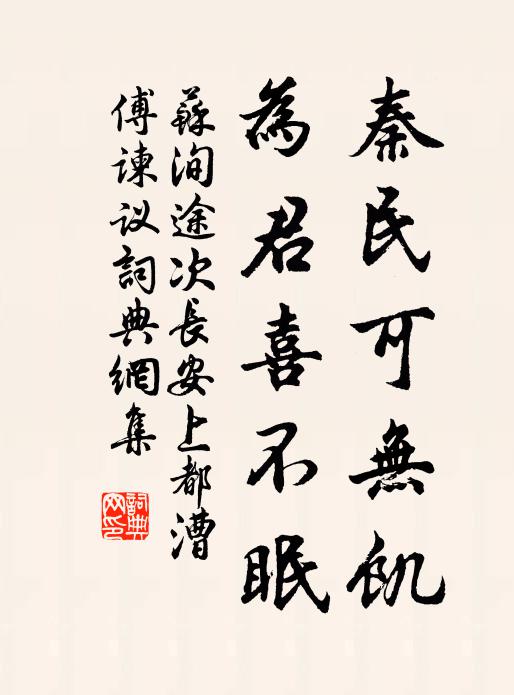 秦民可無飢
為君喜不眠
蘇洵途次長安上都漕
傅諫议詞典網集
詞典网印